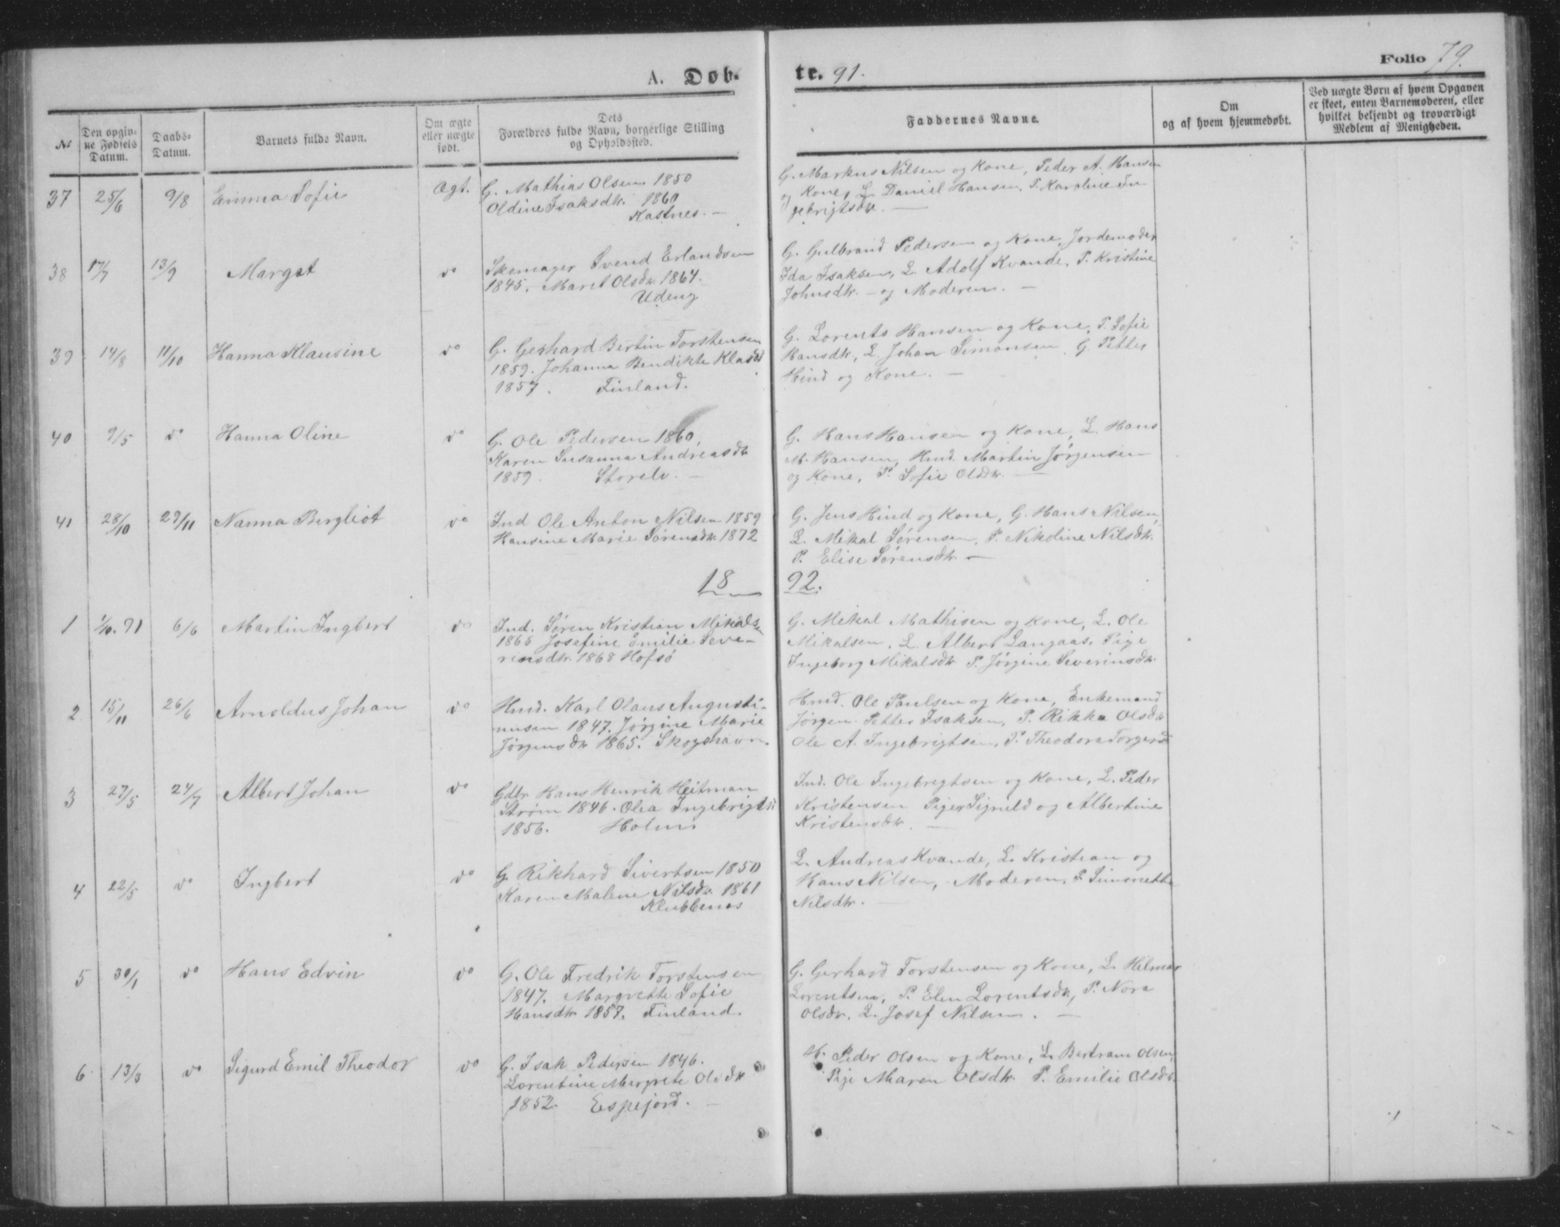 A. Døb-
te. 91.
Folio 79.
No
Den opgiv-
ne Fødsels
Datum.
Daabs-
Datum.
Barnets fulde Navn.
Om ægte
eller uægte
født.
Dets
Forældres fulde Navn, borgerlige Stilling
og Opholdssted.
Faddernes Navne.
Om
og af hvem hjemmedøbt.
Ved uægte Børn af hvem Opgaven
er skeet, enten Barnemoderen, eller
hvilket bekjendt og troværdigt
Medlem af Menigheden.
37 25/6 9/8 Emma Sofie Ægt. G. Mathias Olsen 1850
Oldine Isaksdtr. 1860
Kastnes. —
G. Markus Nilsen og Kone, Peder A. Hansen
og Kone, L. Daniel Hansen, P. Karoline In
gebrigtsdtr. —
38 17/7 13/9 Margit do Skomager Svend Erlandsen
1845. Maret Olsdtr 1864.
Udeng
G. Gulbrand Pedersen og Kone, Jordemoder
Ida Isaksen, L. Adolf Kvande, P. Kristine
Johnsdtr. — og Moderen. —
39 14/8 11/10 Hanna Klausine do G. Gerhard Bertin Torstensen
1859. Johanna Bendikte Klausd
1857. Finland.
G. Lorents Hansen og Kone, P. Sofie
Hansdtr, L. Johan Simonsen, G. Petter
Hind og Kone. —
40 9/5 do Hanna Oline do G. Ole Pedersen 1860,
Karen Susanna Andreasdtr
1859. Storelv. —
G. Hans Hansen og Kone, L. Hans
M. Hansen, Hmd. Martin Jørgensen
og Kone, P. Sofie Olsdtr. —
41 28/10 29/11 Nanna Bergliot do Ind Ole Anton Nilsen 1859
Hansine Marie Sørensdtr 1872
G. Jens Hind og Kone, G. Hans Nilsen,
L. Mikal Sørensen, P. Nikoline Nilsdtr.
P. Elise Sørensdtr —
18 92.
1 /10. 91 6/6 Martin Ingbert do Ind. Søren Kristian Mikals
1866 Josefine Emilie Seve-
rinsdtr. 1868 Hofsø
G. Mikal Mathisen og Kone, L. Ole
Mikalsen, L. Albert Langaas, Pige
Ingeborg Mikalsdtr P. Jørgine Severinsdtr
2 15/11 26/6 Arnoldus Johan do Hmd. Karl Olaus Augusti-
nusen 1847. Jørgine Marie
Jørgensdtr 1865. Skogshavn.
Hmd. Ole Paulsen og Kone, Enkemand
Jørgen Petter Isaksen, P. Rikka Olsdtr
Ole A. Ingebrigtsen, P. Theodora Torgersd
3 27/5 24/7 Albert Johan do Gdbr. Hans Henrik Heitman
Strøm 1846. Olea Ingebrigtsd
1856. Holms
Ind. Ole Ingebregtsen og Kone, L. Peder
Kristensen Piger Signild og Albertine
Kristensdtr. —
4 22/5 do Ingbert do G. Rikhard Sivertsen 1850
Karen Malene Nilsdtr. 1861
Klubbenes
L. Andreas Kvande, L. Kristian og
Hans Nilsen, Moderen, P. Simonette
Nilsdtr. —
5 30/1 do Hans Edvin do G. Ole Fredrik Torstensen
1847. Margrethe Sofie
Hansdtr 1857. Finland.
G. Gerhard Torstensen og Kone, L. Hilmar
Lorentsen, P. Elen Lorentsdtr, P. Nora
Olsdtr. L. Josef Nilsen. —
6 13/3 do Sigurd Emil Theodor do G. Isak Pedersen 1846.
Lorentine Margrete Olsdtr
1852. Espejord. —
H. Peder Olsen og Kone, L. Bertram Olsen,
Pige Maren Olsdtr P. Emilie Olsdtr.